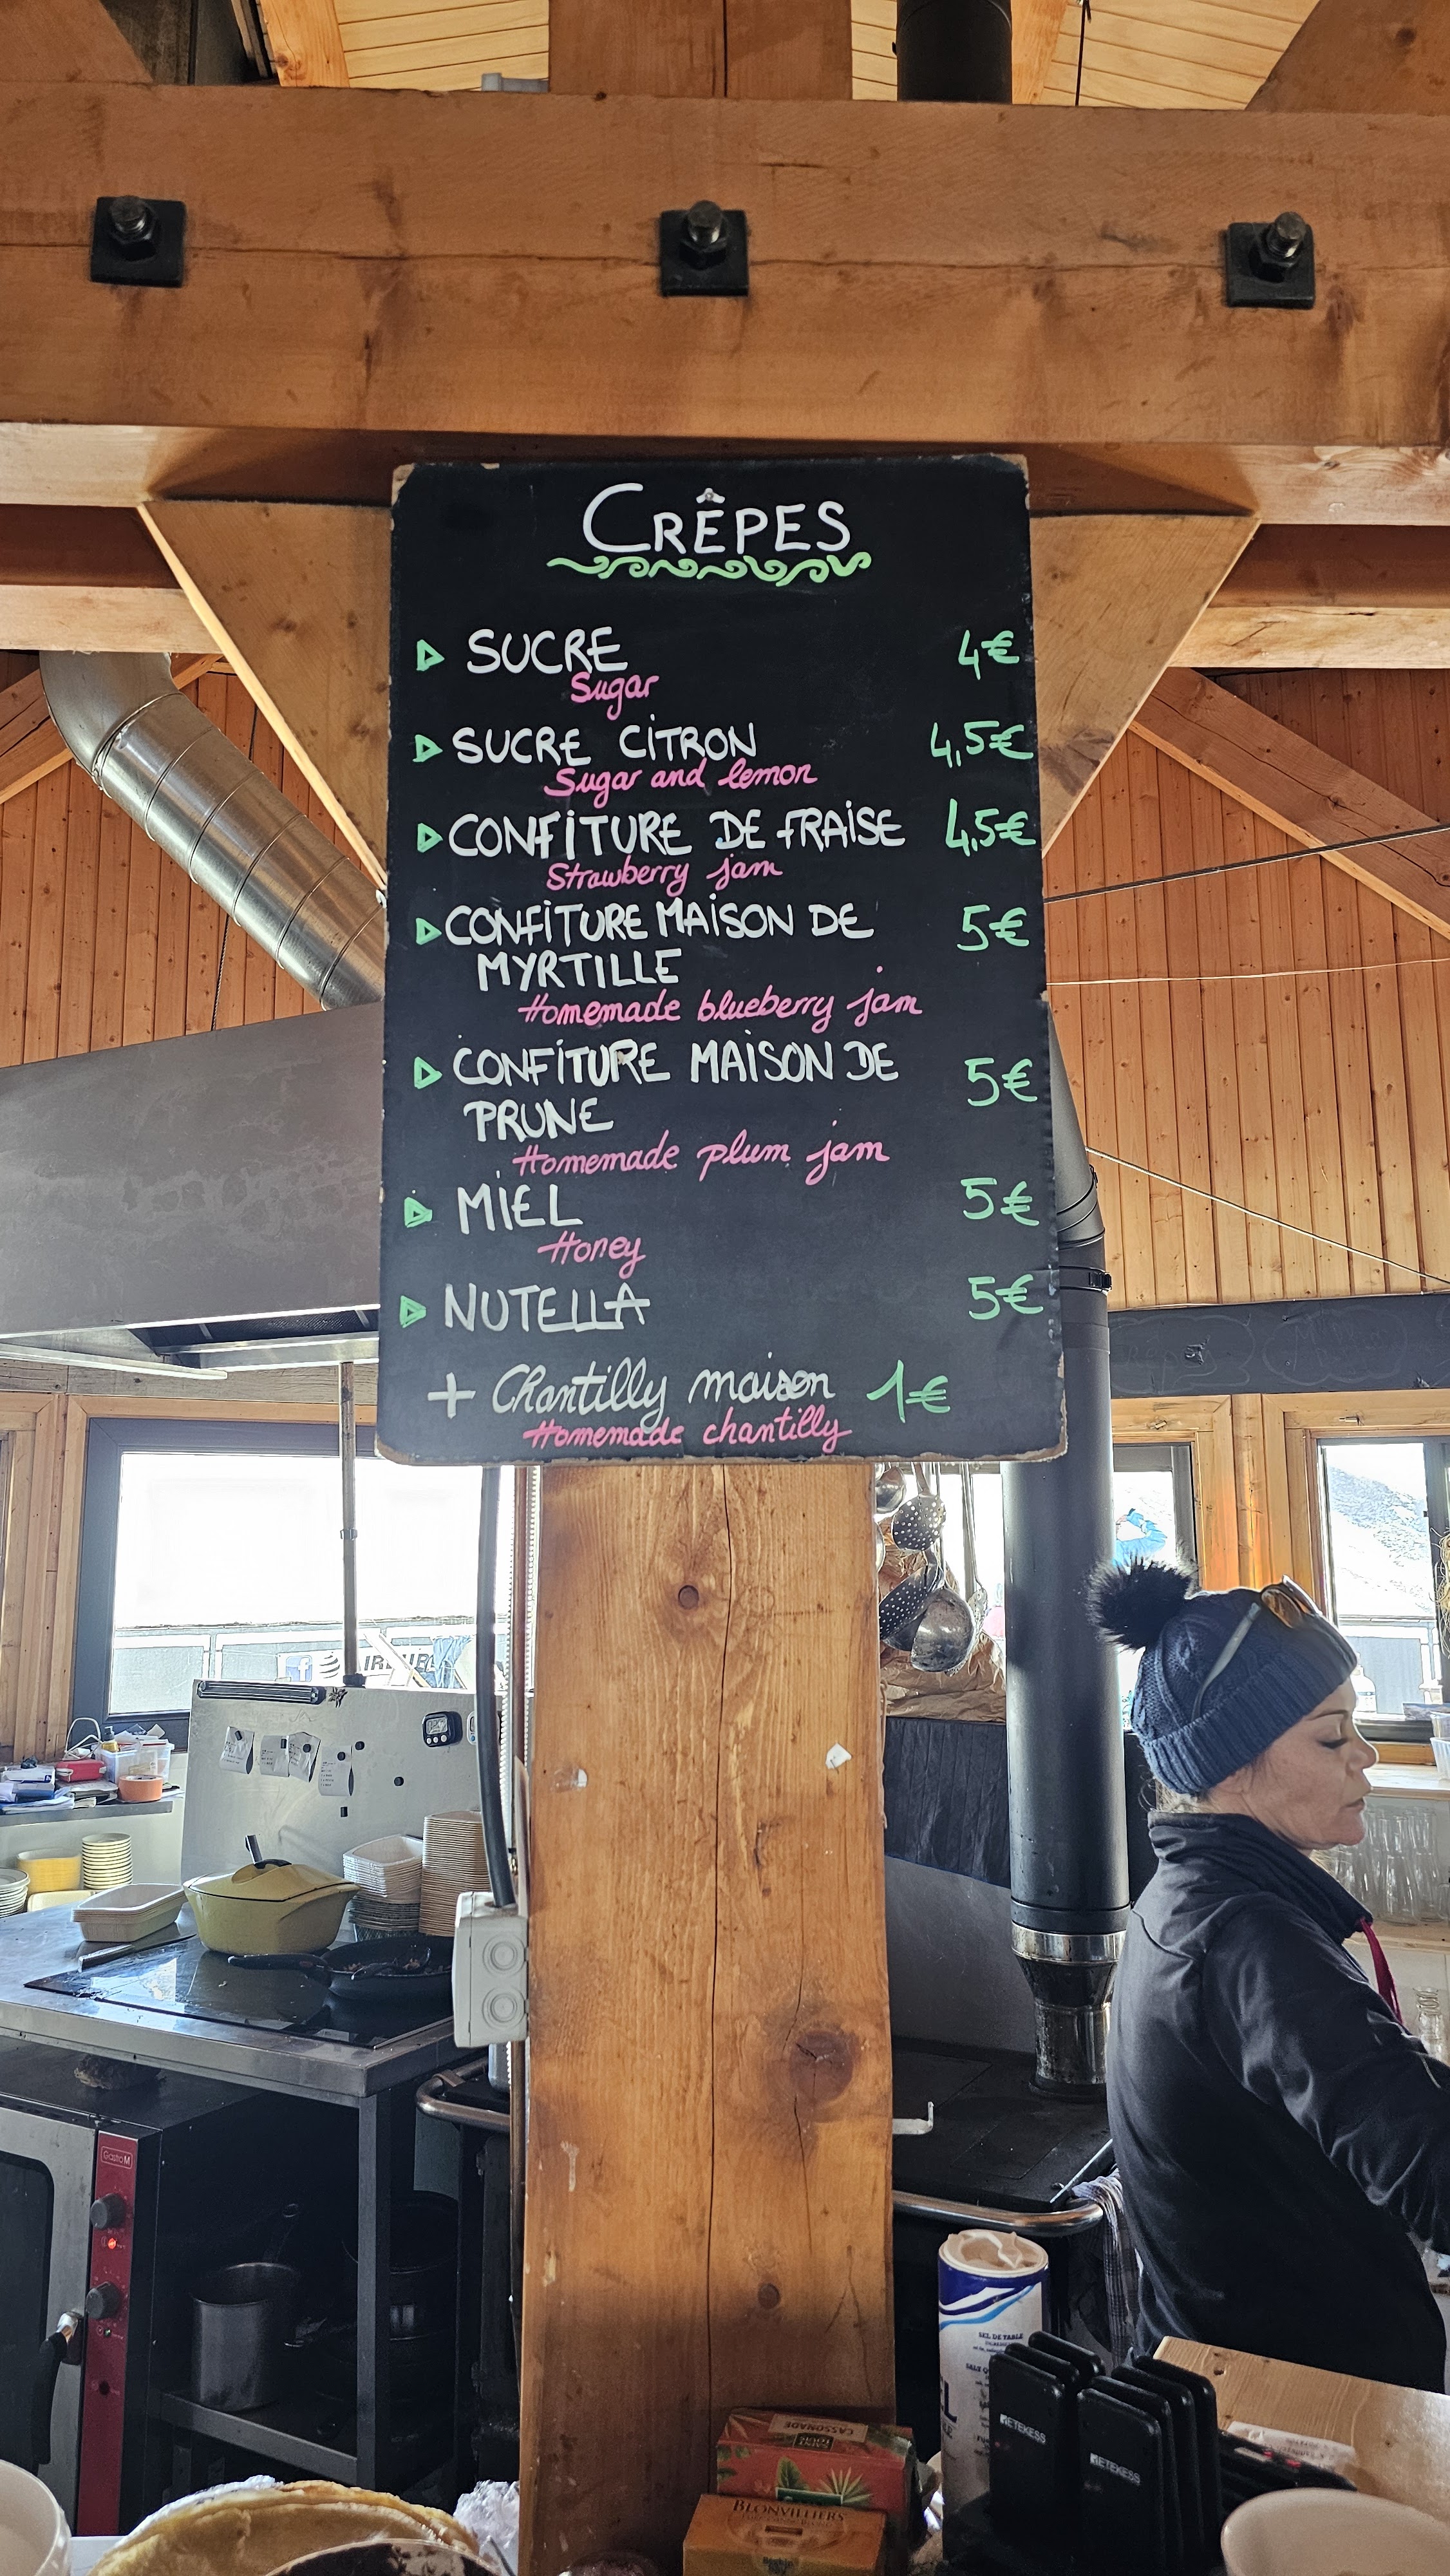 CRÊPES
SUCRE 4€
Sugar
SUCRE CITRON 4,5€
Sugar and lemon
CONFITURE DE FRAISE 4,5€
Strawberry jam
CONFITURE MAISON DE 5€
MYRTILLE
Homemade blueberry jam
CONFITURE MAISON DE 5€
PRUNE
Homemade plum jam
MIEL 5€
Honey
NUTELLA 5€
+ Chantilly maison 1€
Homemade chantilly
GastroM
SEL DE TABLE
CASSONADE
BLONVILLIERS
RETEKESS
RETEKESS